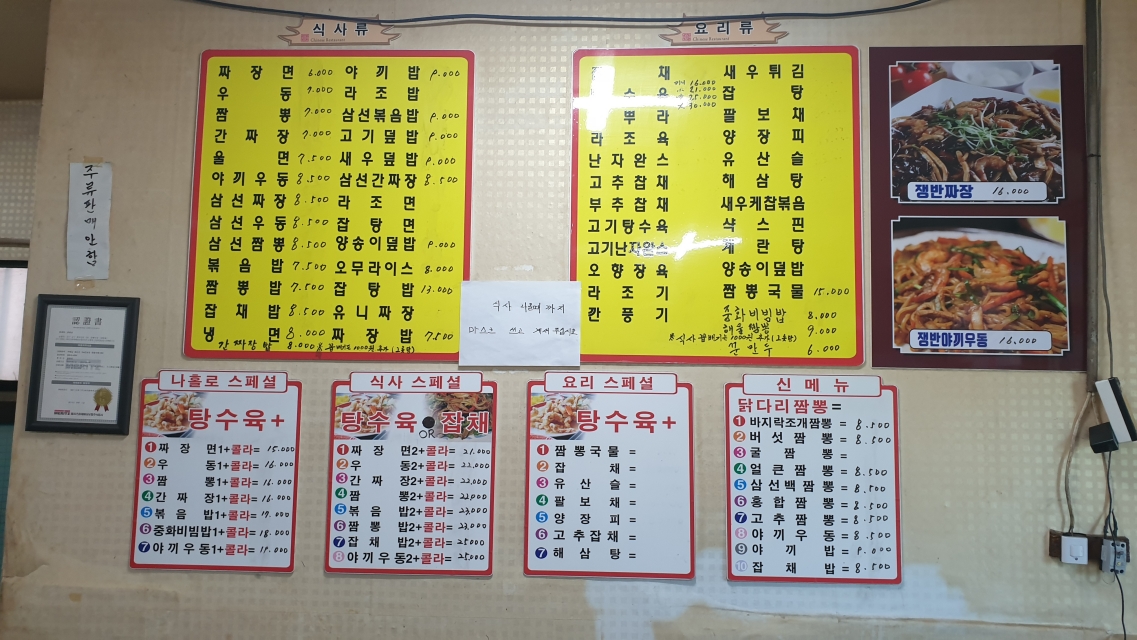 식사류
Chinese Restaurant
짜장면 6.000 야끼밥 9.000
우동 7.000 라조밥
짬뽕 7.000 삼선볶음밥 9.000
간짜장 7.000 고기덮밥 9.000
울면 7.500 새우덮밥 9.000
야끼우동 8.500 삼선간짜장 8.500
삼선짜장 8.500 라조면
삼선우동 8.500 잡탕면
삼선짬뽕 8.500 양송이덮밥 9.000
볶음밥 7.500 오무라이스 8.000
짬뽕밥 7.500 잡탕밥 13.000
잡채밥 8.500 유니짜장
냉면 8.000 짜장밥 7.500
간짜장밥 8.000
요리류
Chinese Restaurant
채 새우튀김
16.000
21.000
25.000
30.000
수육 잡탕
뿌라 팔보채
라조육 양장피
난자완스 유산슬
고추잡채 해삼탕
부추잡채 새우케찹볶음
고기탕수육 샥스핀
고기난자완스 채란탕
오향장육 양송이덮밥
라조기 짬뽕국물 15.000
깐풍기 중화비빔밥 8.000
해물짬뽕 9.000
군만두 6.000
쟁반짜장 16.000
쟁반야끼우동 16.000
주류판매안함
認證書
식사 나올때까지
마스크 쓰고 계셔 주십시오
나홀로 스페셜
탕수육+
1 짜장면1+콜라= 15.000
2 우동1+콜라= 16.000
3 짬뽕1+콜라= 16.000
4 간짜장1+콜라= 16.000
5 볶음밥1+콜라= 17.000
6 중화비빔밥1+콜라= 18.000
7 야끼우동1+콜라=
식사 스페셜
탕수육 OR 잡채
1 짜장면2+콜라= 21.000
2 우동2+콜라= 22,000
3 간짜장2+콜라= 22,000
4 짬뽕2+콜라= 22,000
5 볶음밥2+콜라= 23,000
6 짬뽕밥2+콜라= 23,000
7 잡채밥2+콜라= 25000
8 야끼우동2+콜라= 25000
요리 스페셜
탕수육+
1 짬뽕국물 =
2 잡채 =
3 유산슬 =
4 팔보채 =
5 양장피 =
6 고추잡채 =
7 해삼탕 =
신메뉴
닭다리짬뽕=
1 바지락조개짬뽕= 8.500
2 버섯짬뽕= 8.500
3 굴짬뽕=
4 얼큰짬뽕= 8.500
5 삼선백짬뽕= 8.500
6 홍합짬뽕= 8.500
7 고추짬뽕= 8.500
8 야끼우동= 8.500
9 야끼밥= 9.000
10 잡채밥= 8.500